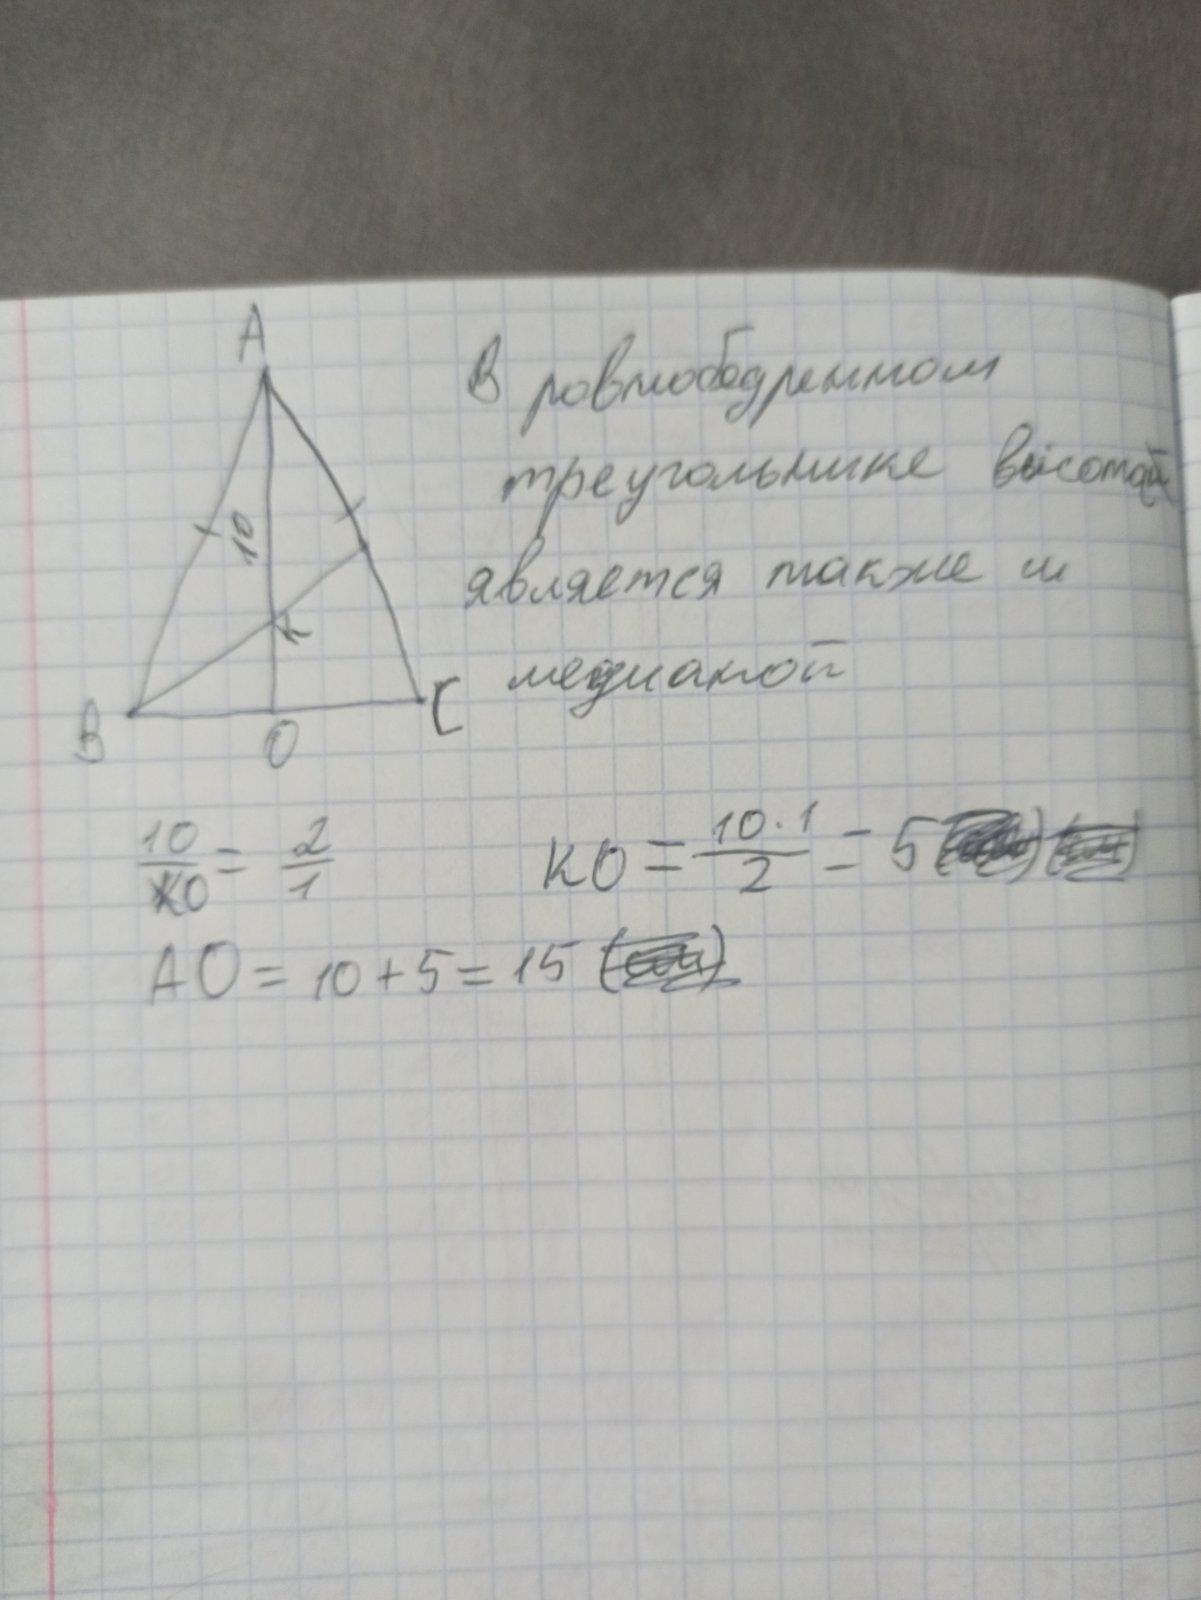 A
В ровнобедренном
треугольнике высотой
10
является также и
K
медианой
B
O
C
10/KO = 2/1
KO = 10·1/2 = 5
AO = 10+5 = 15